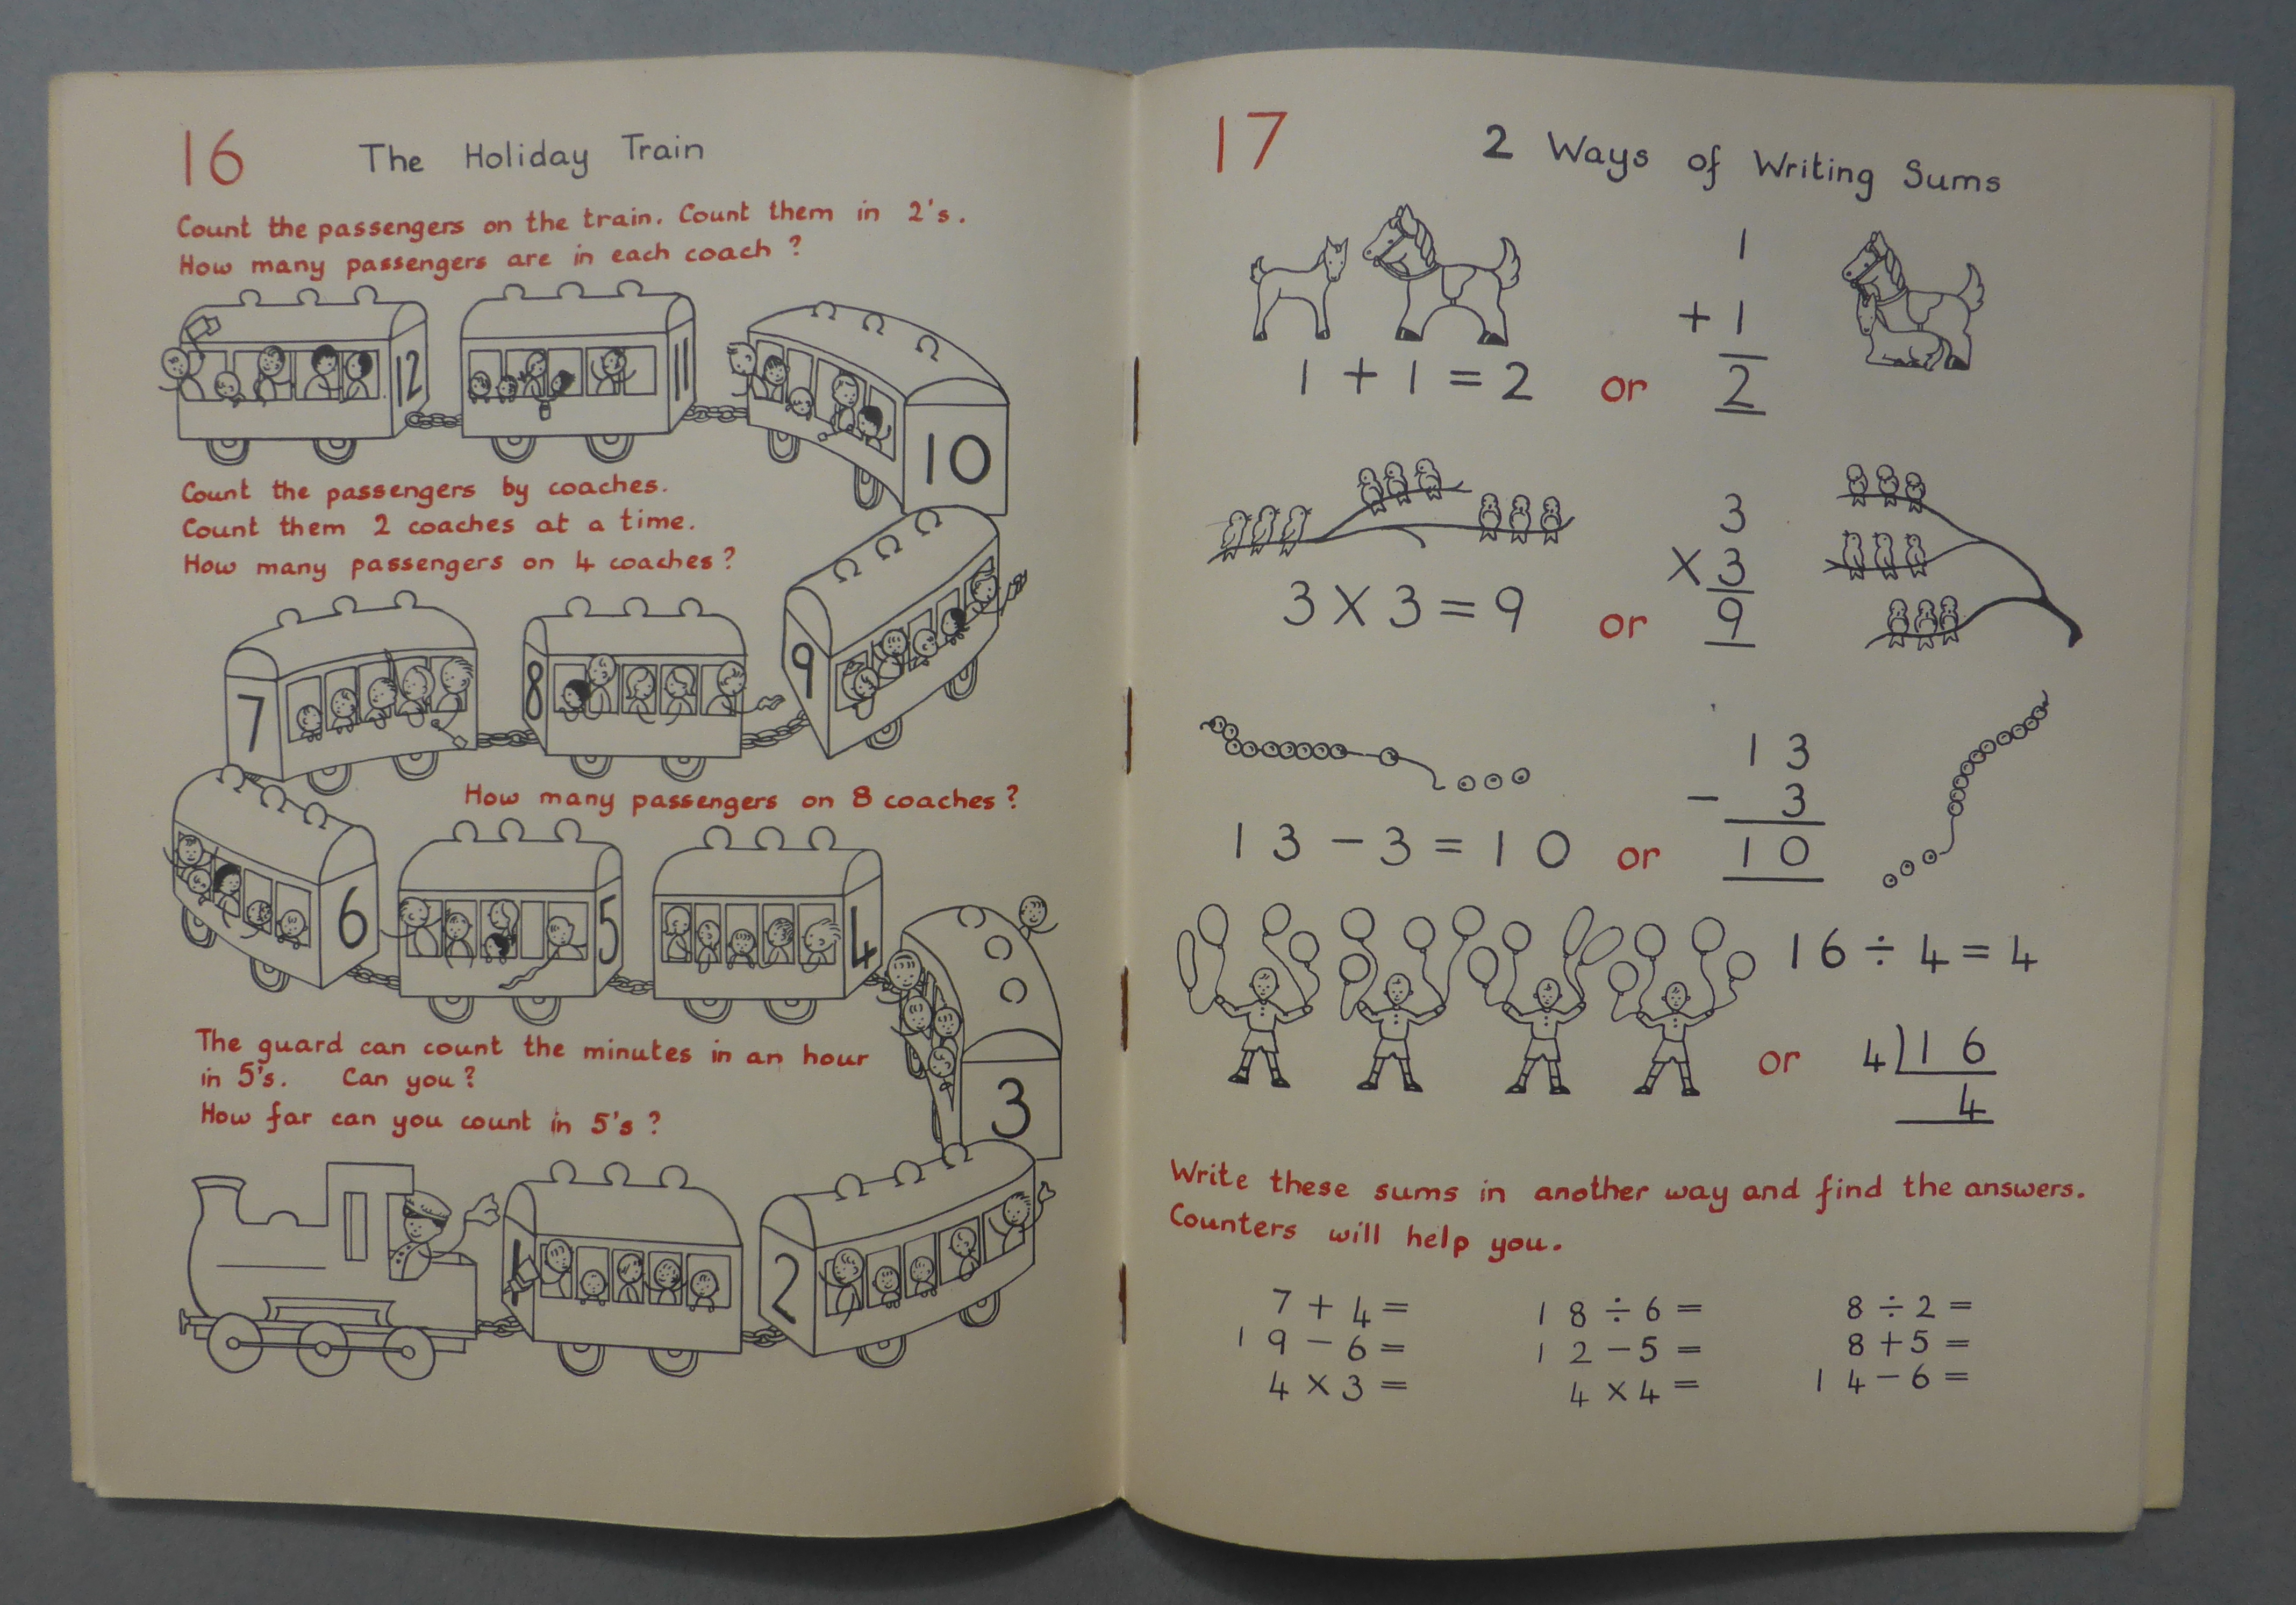 16
The Holiday Train
Count the passengers on the train. Count them in 2's.
How many passengers are in each coach?
12
11
10
Count the passengers by coaches.
Count them 2 coaches at a time.
How many passengers on 4 coaches?
7
8
9
How many passengers on 8 coaches?
6
5
4
The guard can count the minutes in an hour
in 5's. Can you?
How far can you count in 5's?
3
1
2
17
2 Ways of Writing Sums
1
+ 1
1 + 1 = 2 or 2
3
x 3
3 x 3 = 9 or 9
13
- 3
13 - 3 = 10 or 10
16 ÷ 4 = 4
or 4)16
4
Write these sums in another way and find the answers.
Counters will help you.
7 + 4 = 18 ÷ 6 = 8 ÷ 2 =
19 - 6 = 12 - 5 = 8 + 5 =
4 x 3 = 4 x 4 = 14 - 6 =